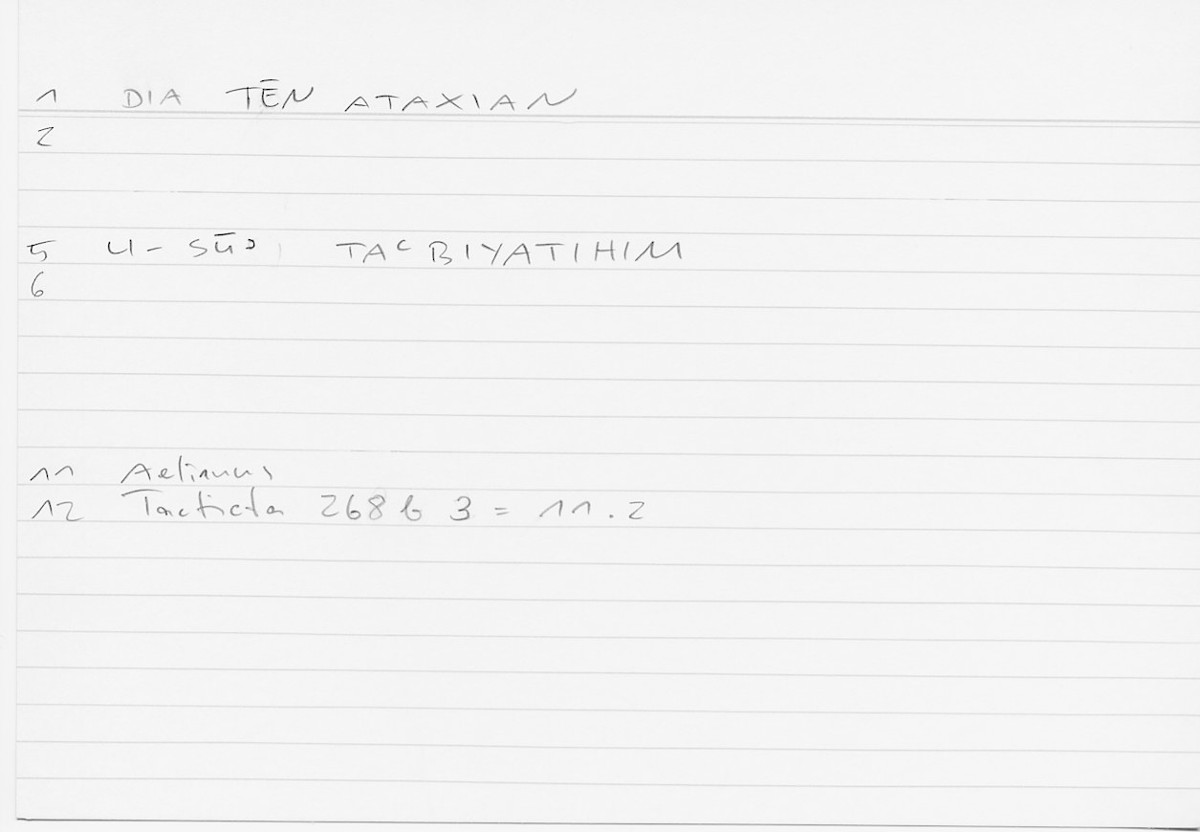 1 DIA TĒN ATAXIAN
2
5 LI-SŪʾ TAʿBIYATIHIM
6
11 Aelianus
12 Tactica 268 b 3 = 11.2